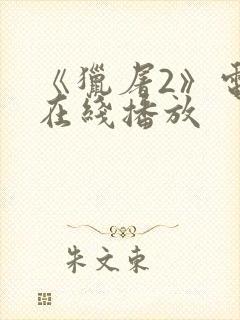 《獵屠2》電
在綫播放
朱文東